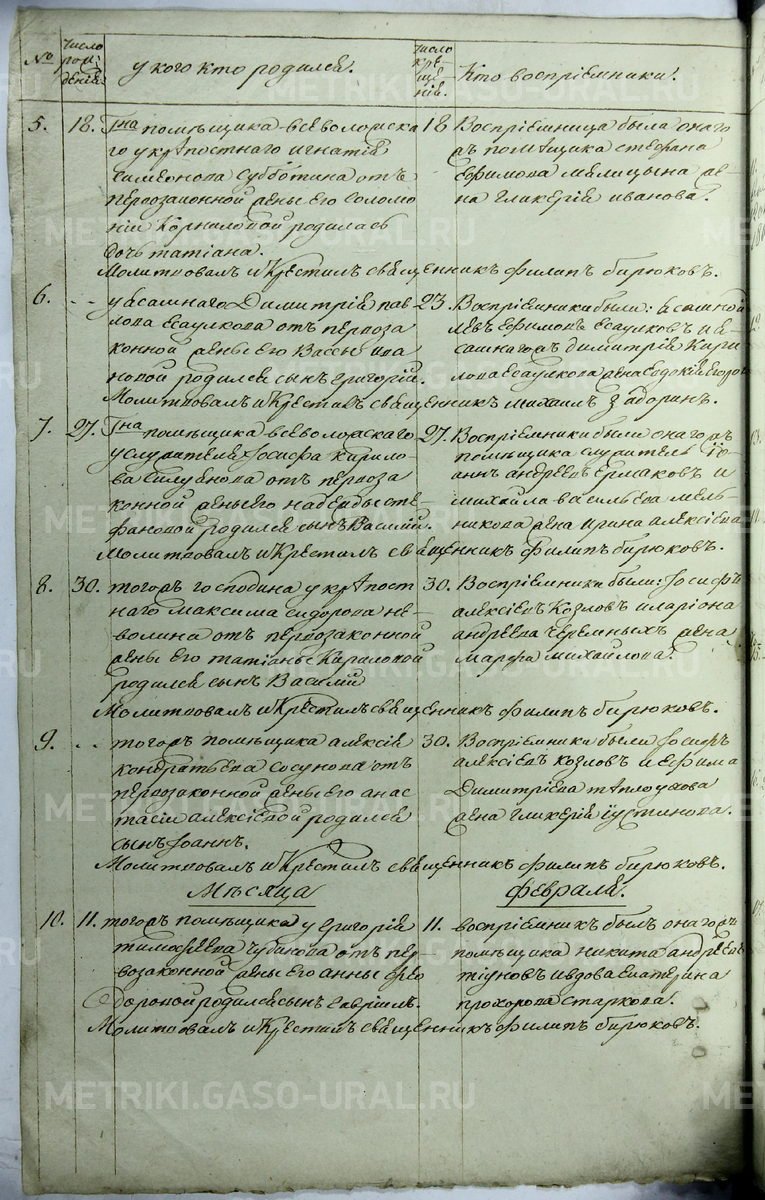 №
число рож: дения.
у кого кто родился.
число кре- ще- нiя.
Кто воспрiемники.
5. 18. Гна помѣщика всеволожска
го у крѣпостнаго игнатiя
Симеонова Субботина отъ
первозаконной жены его Соломо
нiи Корниловой родилась
дочь татiана.
18 Воспрiемница была онаго
жъ помѣщика стефана
Ефимова мелицына же-
на гликерiя иванова.
Молитвовалъ и Крестилъ священникъ филипъ бирюковъ.
6. - - у ясашнаго Димитрiя пав
лова Есаулкова отъ первоза
конной жены его Вассы ива
новой родился сынъ григорiй.
23. Воспрiемники были: ясашной
левъ Ефимовъ Есаулковъ и я-
сашнагожъ димитрiя Кири
лова Есаулкова жена Евдокiя
Молитвовалъ и Крестилъ священникъ михаилъ
7. 27. Гна помѣщика всеволожскаго
у служителя Iосифа кирило-
ва отъ первоза
конной жены его надежды сте-
фановой родился сынъ Василiй.
27. Воспрiемники были онагожъ
помѣщика служитель iо-
аннъ андреевъ Ермаковъ и
михайла васильева мель-
никова жена ирина алексiева
Молитвовалъ и Крестилъ священникъ филипъ бирюковъ.
8. 30. тогожъ господина у крѣпост
наго максима сидорова не-
волина отъ первозаконной
жены его татiаны Кириловой
родился сынъ Василiй
30. Воспрiемники были: Iосифъ
алексiевъ Козловъ и ларiона
андреева Черемныхъ жена
марфа михайлова.
Молитвовалъ и Крестилъ священникъ филипъ бирюковъ.
9. - - тогожъ помѣщика алексiя
кондратьева Сосунова отъ
первозаконной жены его анас
тасiи алексiевой родился
сынъ Iоаннъ.
30. Воспрiемники были Iосифъ
алексiевъ козловъ и Ефима
Димитрiева тѣплоухова
жена гликерiя iустинова.
Молитвовалъ и Крестилъ священникъ филипъ бирюковъ.
Мѣсяца
февраля.
10. 11. тогожъ помѣщика у григорiя
тимофеева отъ пер-
возаконной жены его анны фео
доровой родился сынъ гаврiилъ.
11. воспрiемникъ былъ онагожъ
помѣщика никита андреевъ
тiуновъ и вдова Екатерина
прохорова старкова.
Молитвовалъ и Крестилъ священникъ филипъ бирюковъ.
METRIKI.GASO-URAL.RU